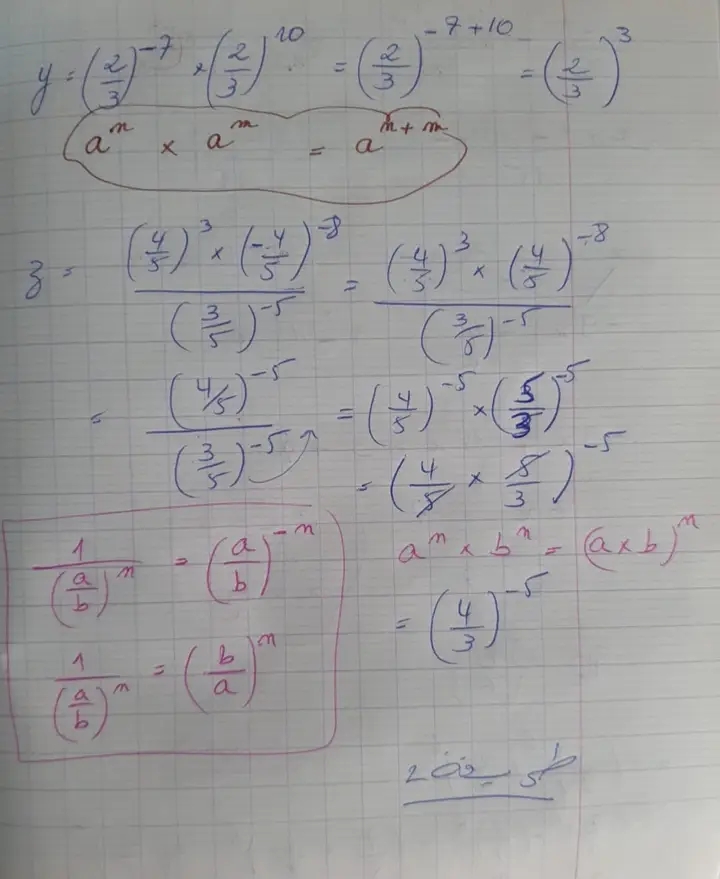 y = (2/3)^-7 × (2/3)^10 = (2/3)^-7+10 = (2/3)^3
a^n × a^m = a^n+m
z = (4/5)^3 × (-4/5)^-8 / (3/5)^-5 = (4/5)^3 × (4/5)^-8 / (3/5)^-5
= (4/5)^-5 / (3/5)^-5 = (4/5)^-5 × (5/3)^-5
= (4/5 × 5/3)^-5
1/(a/b)^n = (a/b)^-n
a^n × b^n = (a × b)^n
= (4/3)^-5
1/(a/b)^n = (b/a)^n